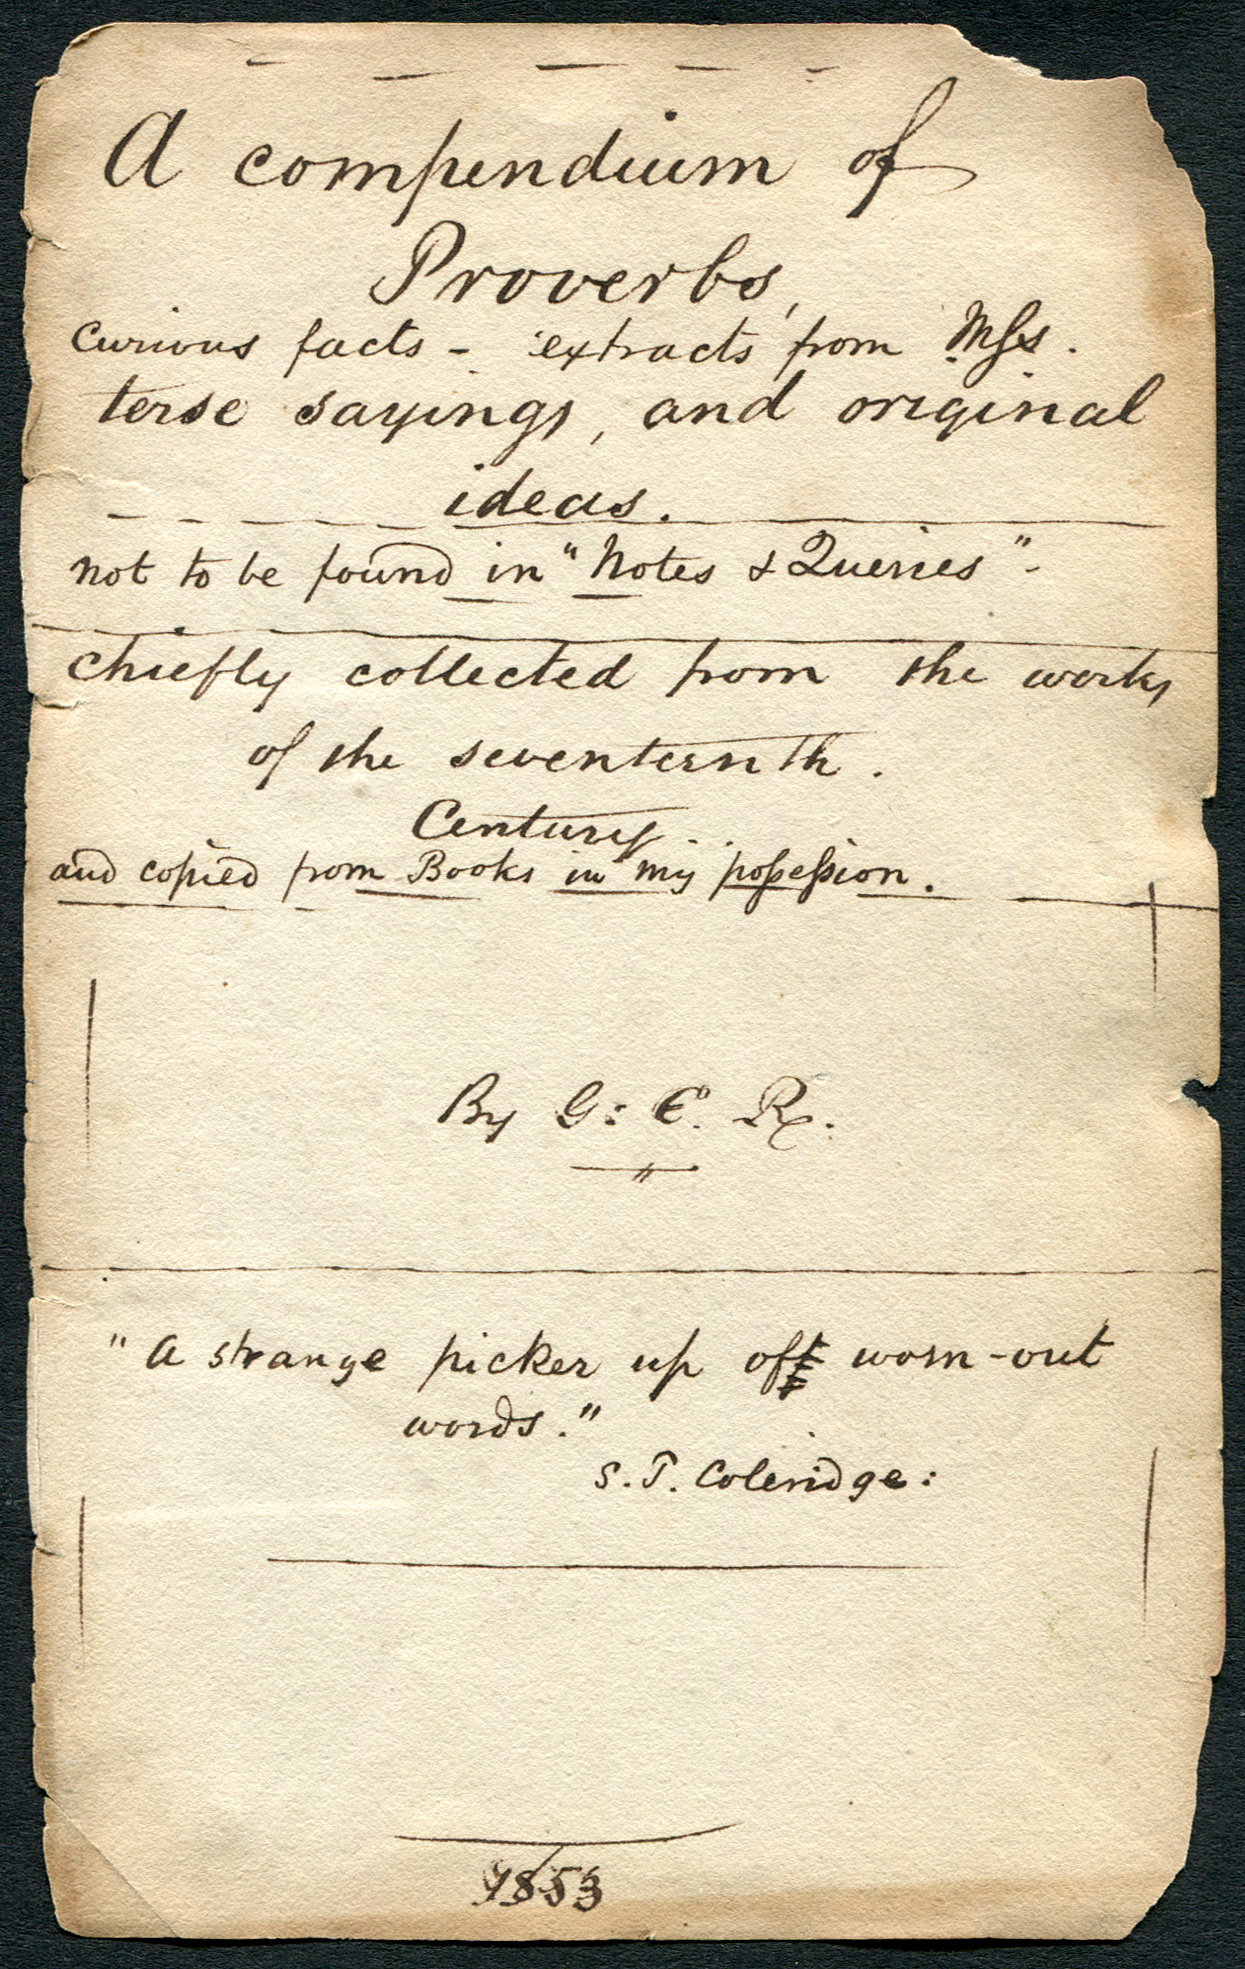 A compendium of
Proverbs,
curious facts - extracts from Mſs.
terse sayings, and original
ideas.
not to be found in "Notes & Queries" -
chiefly collected from the works
of the seventeenth.
Century.
and copied from Books in my poſseſsion.
By G: E. R.
"A strange picker up of worn-out
words."
S. T. Coleridge:
1853